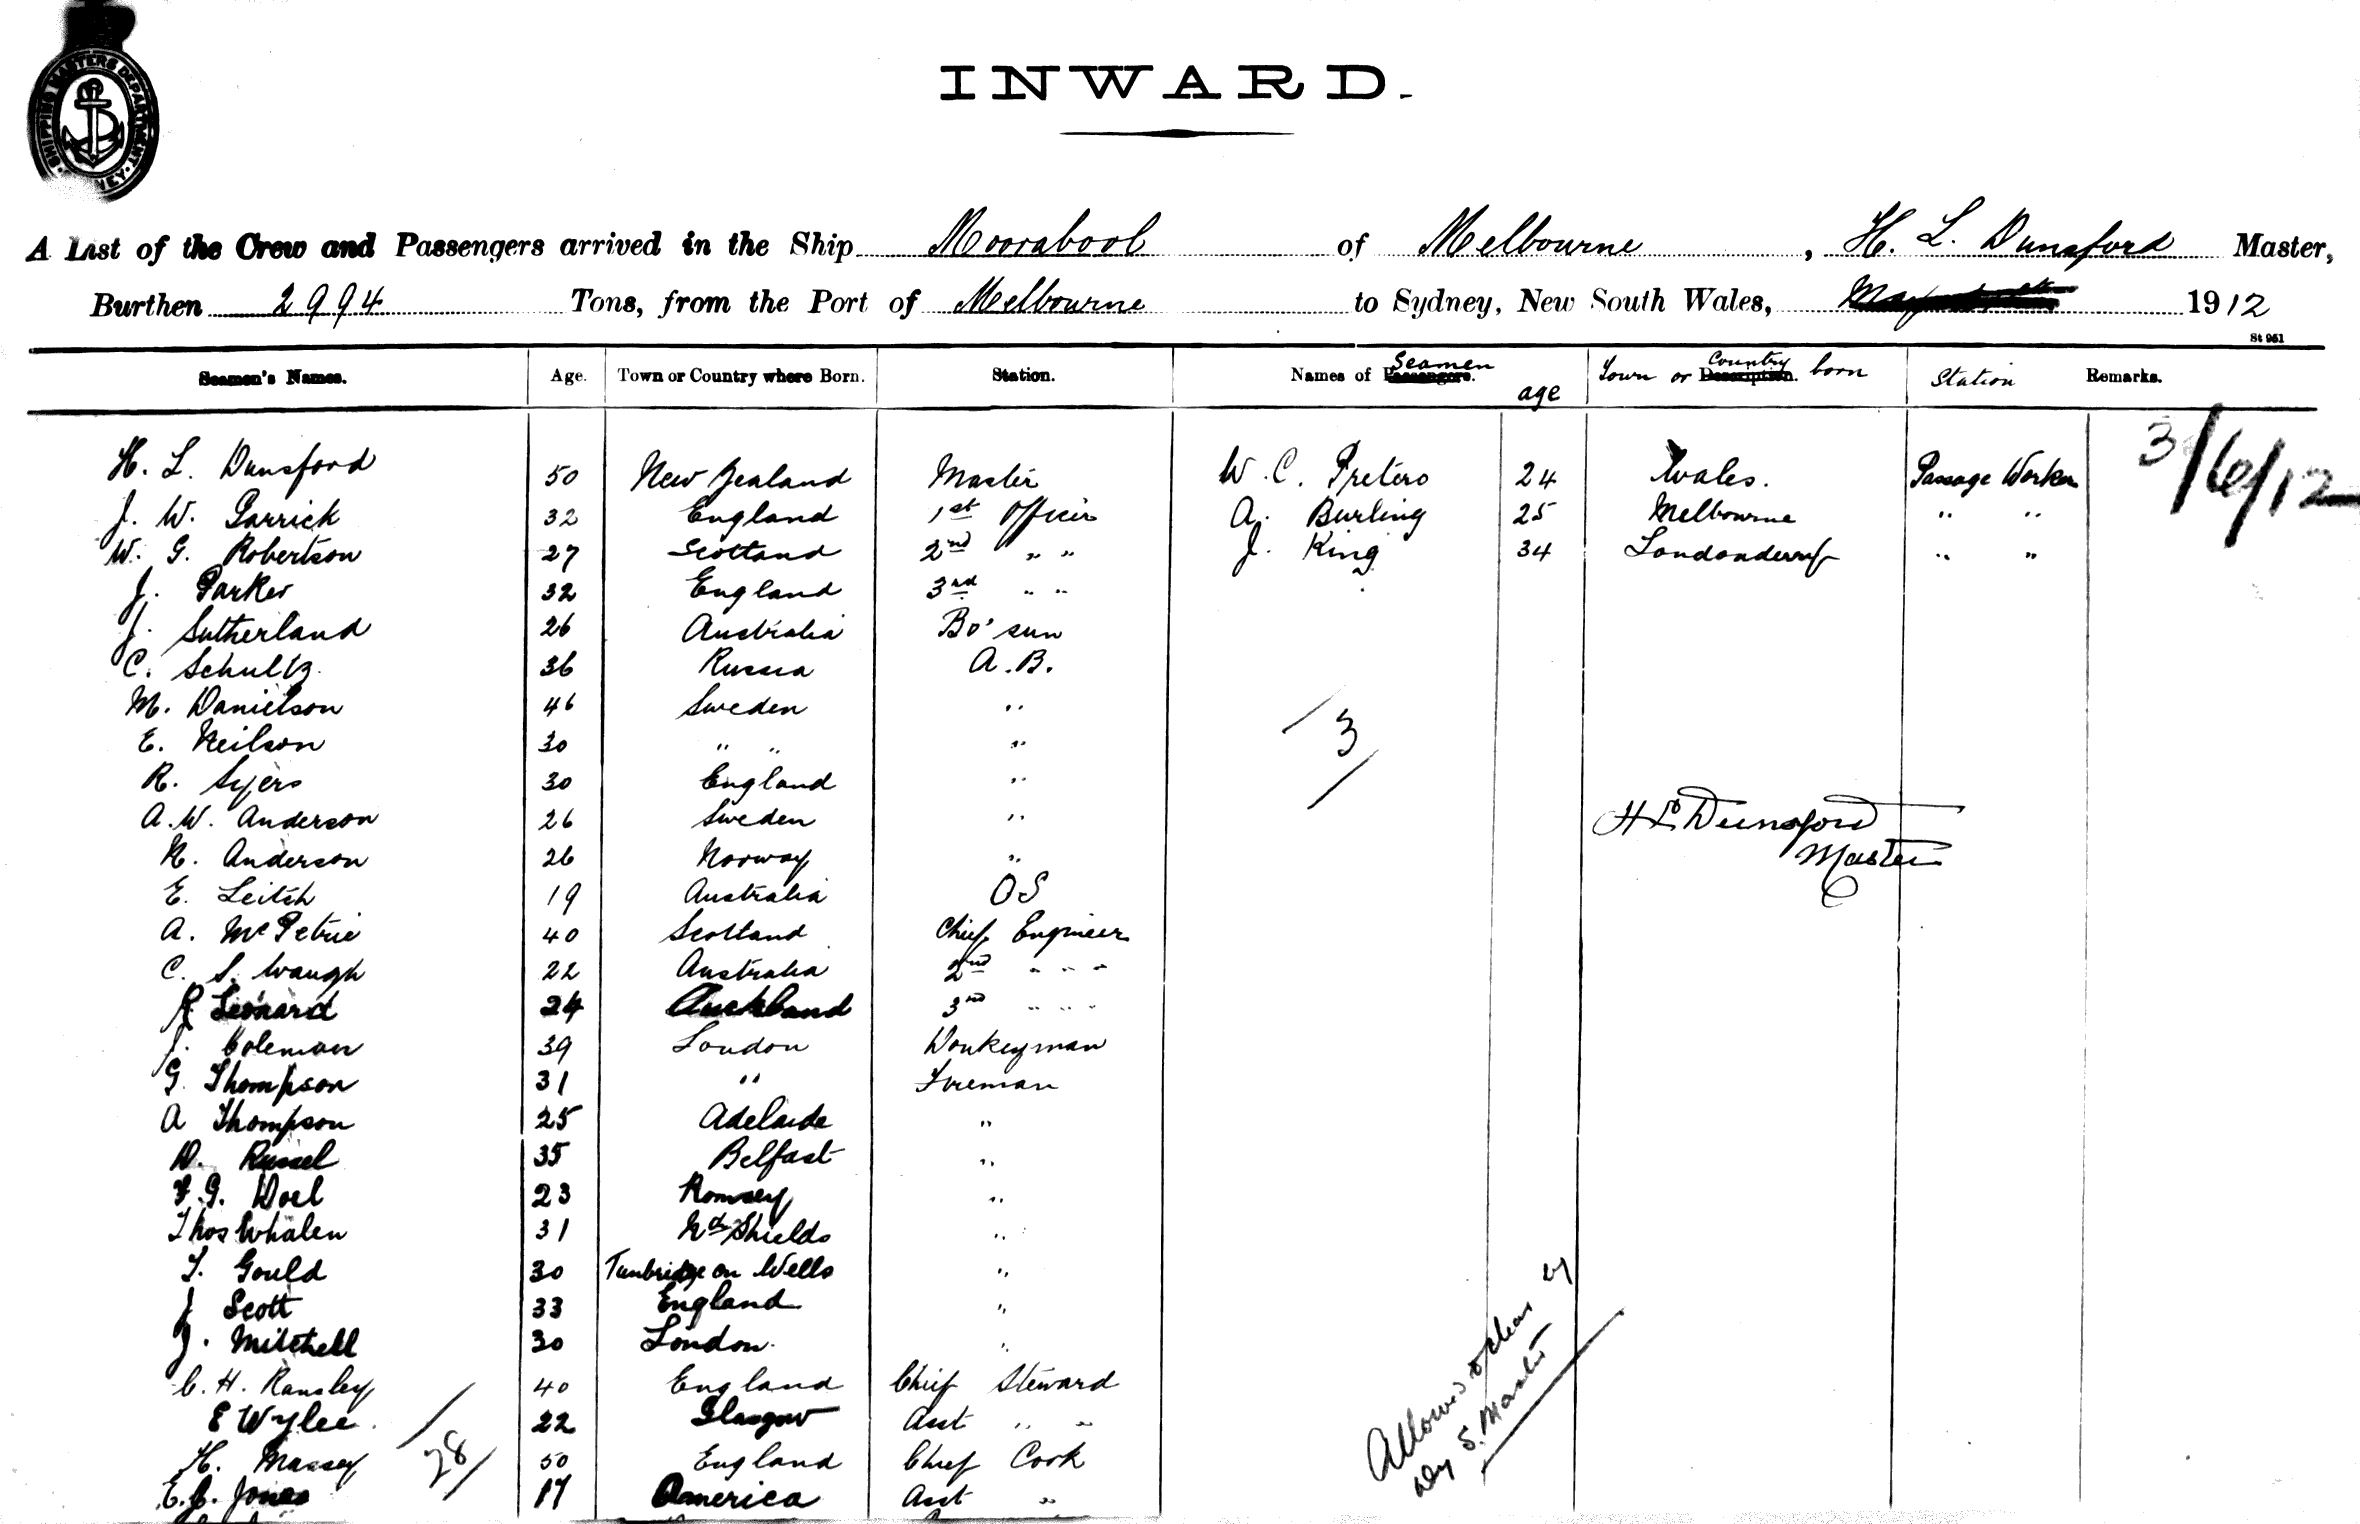 SHIPPING MASTERS DEPARTMENT
INWARD.
A List of the Crew and Passengers arrived in the Ship Moorabool of Melbourne, H. L. Dunsford Master,
Burthen 2994 Tons, from the Port of Melbourne to Sydney, New South Wales, 1912
St 951
Seamen's Names. Age. Town or Country where Born. Station. Names of Seamen age Town or Country born Station Remarks.
3/6/12
H. L. Dunsford 50 New Zealand Master W. C. Pretero 24 Wales. Passage Worker
J. W. Garrick 32 England 1st Officer A. Burling 25 Melbourne " "
W. G. Robertson 27 Scotland 2nd " " J. King 34 Londonderry " "
J. Parker 32 England 3rd " "
J. Sutherland 26 Australia Bo'sun
C. Schultz 36 Russia A.B.
M. Danielson 46 Sweden "
E. Neilson 30 " " "
3
R. Syers 30 England "
A. W. Anderson 26 Sweden "
H L Dunsford
N. Anderson 26 Norway "
Master
E. Leitch 19 Australia OS
A. McPetrie 40 Scotland Chief Engineer
C. S. Waugh 22 Australia 2nd " " "
R Leonard 24 Auckland 3rd " " "
J. Coleman 39 London Donkeyman
G. Thompson 31 " Fireman
A Thompson 25 Adelaide "
D. Russel 35 Belfast "
F. G. Doel 23 Romsey "
Thos Whalen 31 Nth Shields "
T. Gould 30 Tunbridge on Wells "
J Scott 33 England "
J. Mitchell 30 London. "
C. H. Ransley 40 England Chief Steward
E Wylee. 22 Glasgow Asst " "
H. Massey 50 England Chief Cook
28
E. C. Jones 17 America Asst "
Allowed to clear by
Dy S. Master